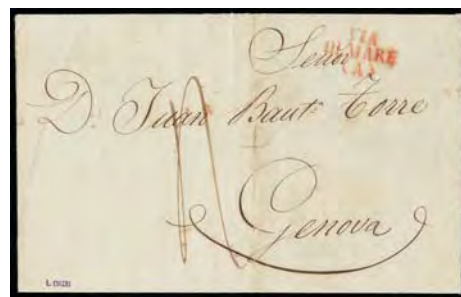 VIA
DI MARE
(A)
Señor
D. Juan Baut.ª Torre
Genova